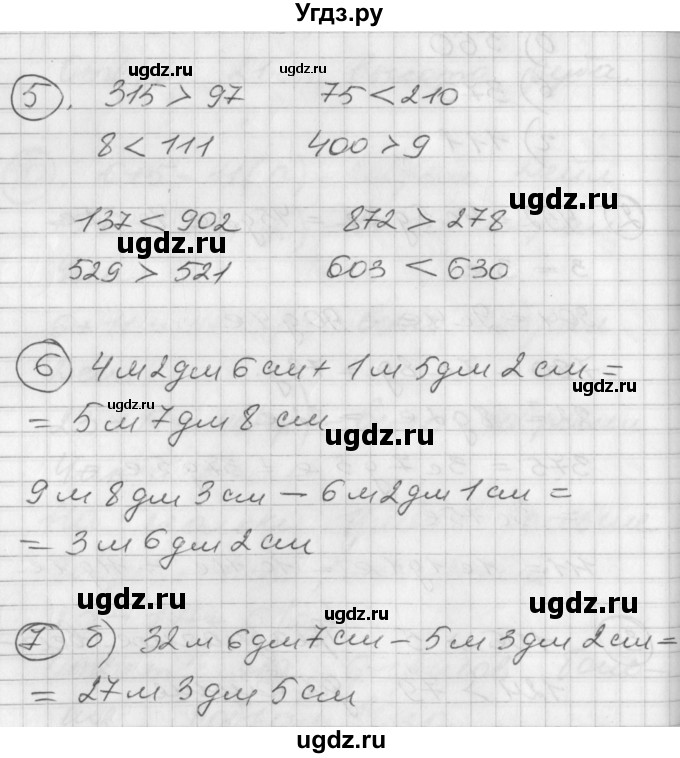 Угдз.ру
ugdz.ru ugdz.ru
5. 315 > 97 75 < 210
8 < 111 400 > 9
ugdz.ru
137 < 902 872 > 278
ugdz.ru
ugdz.ru
529 > 521 603 < 630
6 4м 2дм 6см + 1м 5дм 2см =
ugdz.ru
ugdz.ru
= 5м 7дм 8 см
ugdz.ru
9м 8дм 3см - 6м 2дм 1см =
= 3м 6дм 2см
ugdz.ru
ugdz.ru
7 б) 32м 6дм 7см - 5м 3дм 2см =
= 27м 3дм 5см
ugdz.ru
ugdz.ru